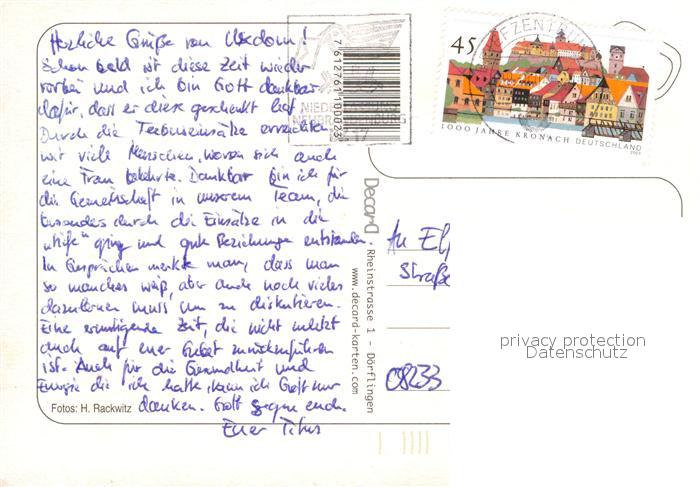 Herzliche Grüße von Usedom!
Schon bald ist diese Zeit wieder
vorbei und ich bin Gott dankbar
dafür, dass er diese geschenkt hat.
Durch die Teebuseinsätze erreichten
wir viele Menschen, wovon sich auch
eine Frau bekehrte. Dankbar bin ich für
die Gemeinschaft in unserem Team, die
besonders durch die Einsätze in die
"Tiefe" ging und gute Beziehungen entstanden.
In Gesprächen merkte man, dass man
so manches weiß, aber auch noch vieles
dazulernen muss um zu diskutieren.
Eine ermutigende Zeit, die nicht zuletzt
auch auf euer Gebet zurückzuführen
ist. Auch für die Gesundheit und
Energie die ich hatte, kann ich Gott nur
danken. Gott segne euch.
Euer Titus
Fotos: H. Rackwitz
7 612761 100023
Decard . Rheinstrasse 1 - Dörflingen
www.decard-karten.com
45
1000 JAHRE KRONACH DEUTSCHLAND
2003
An
Straße
08233
privacy protection
Datenschutz